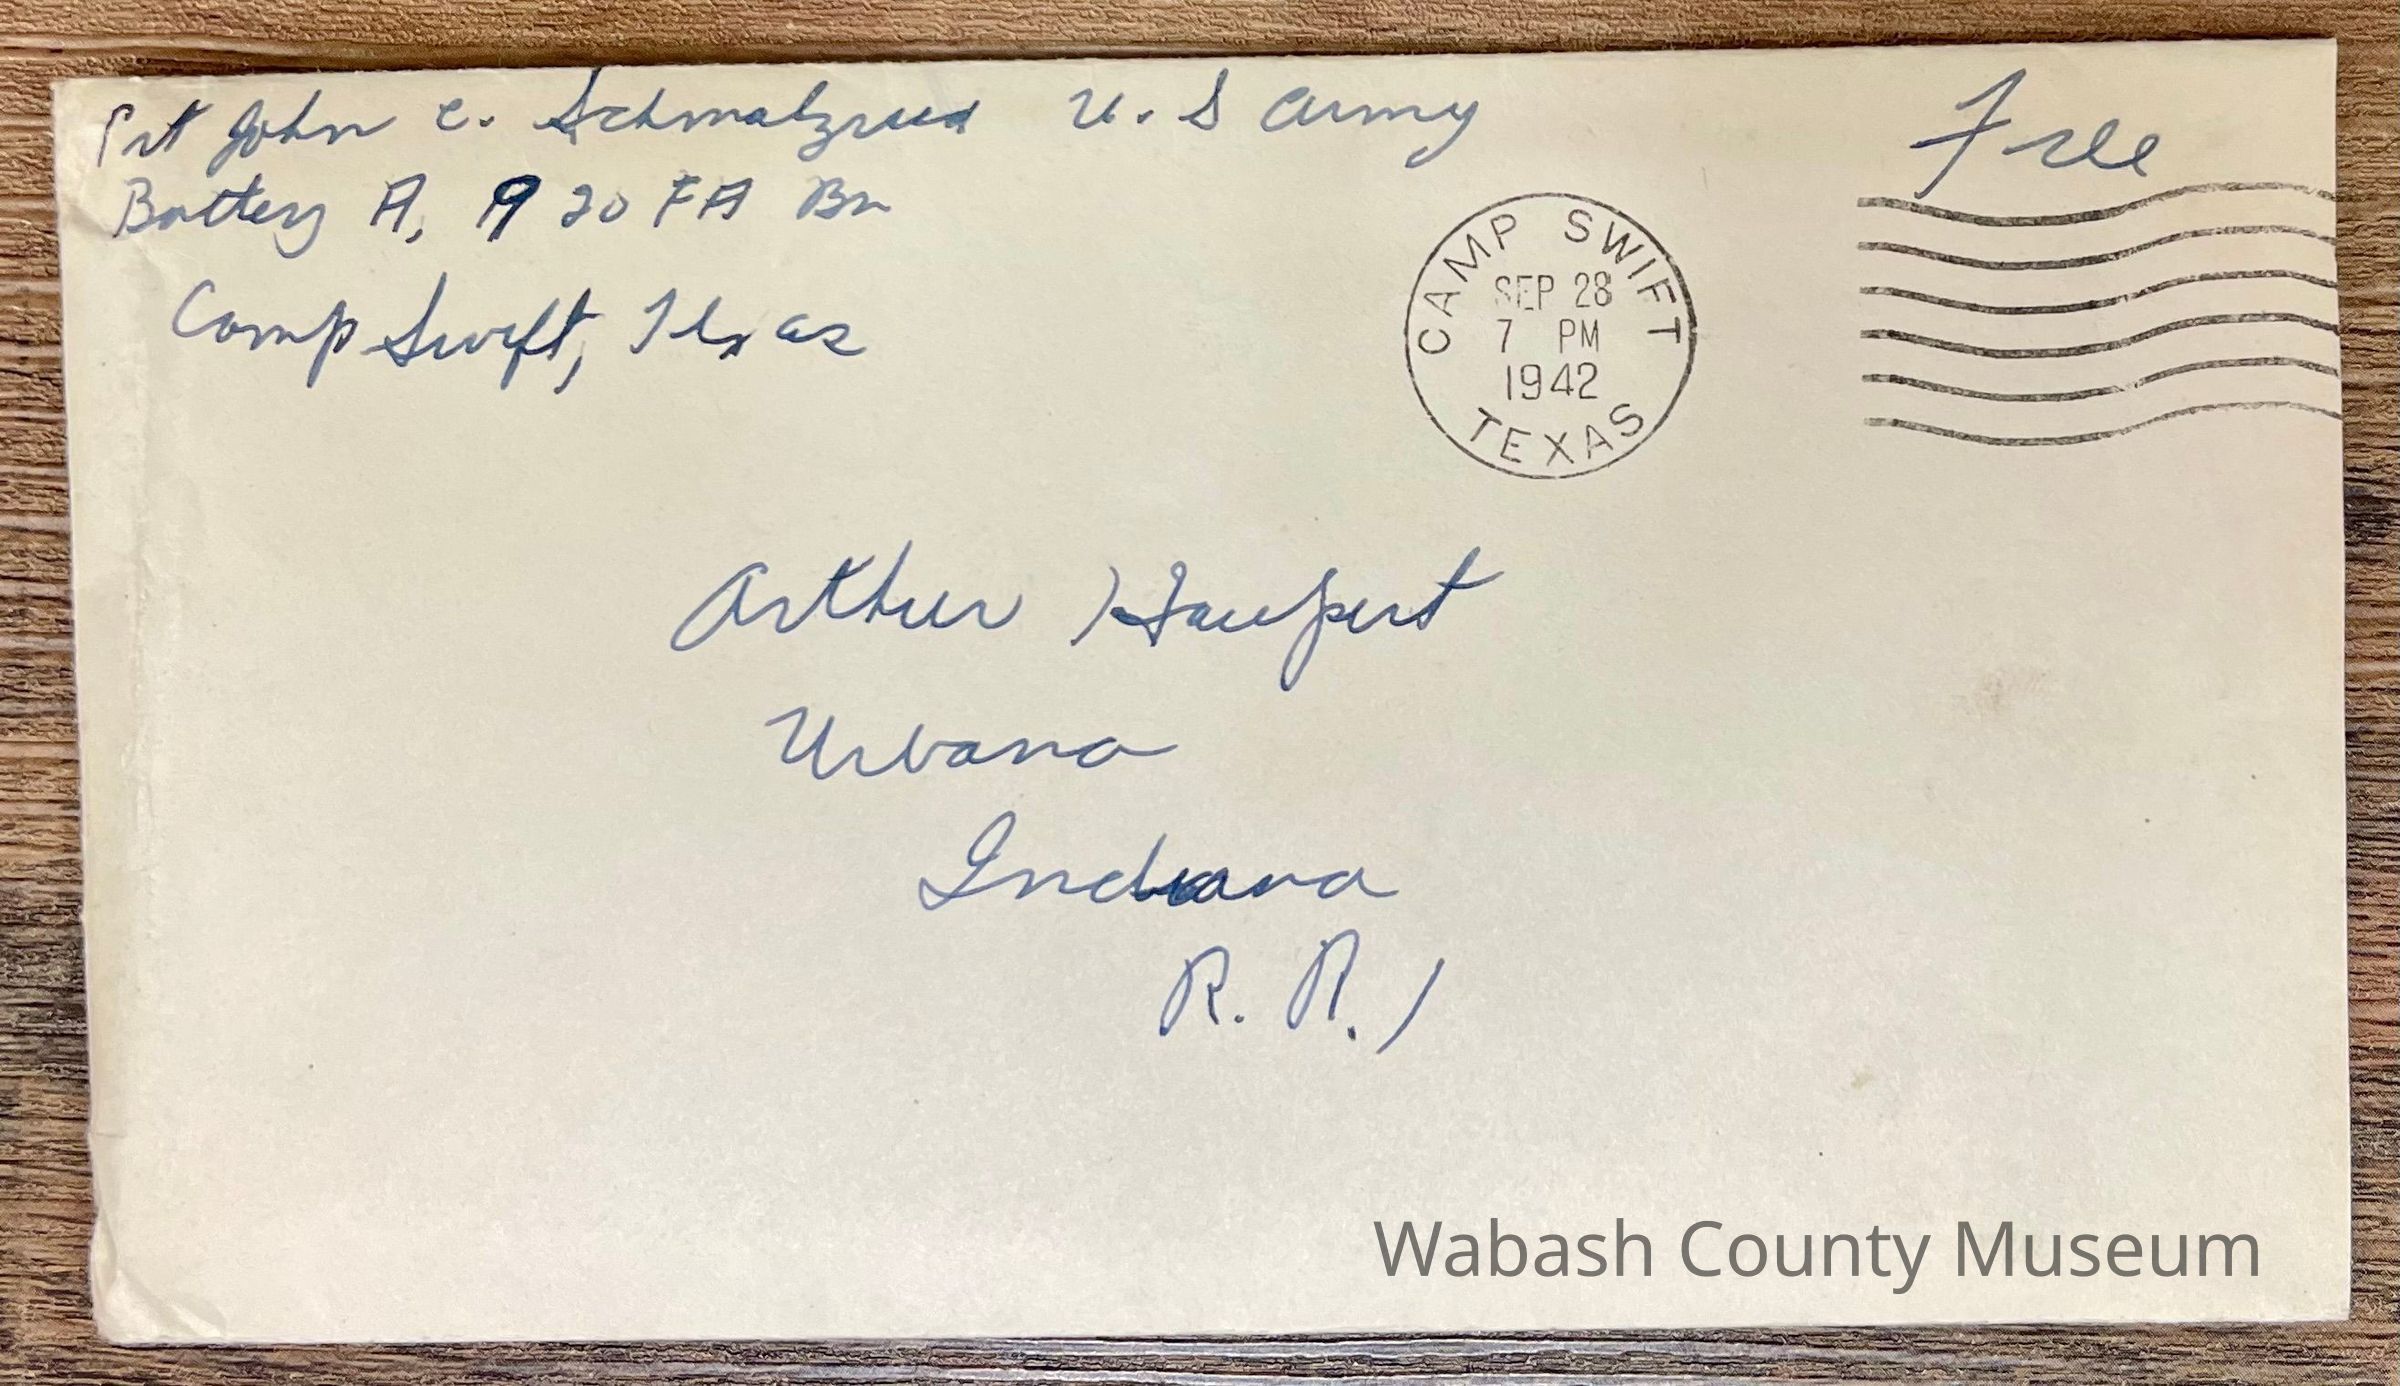 Pvt John C. Schmalzried U. S Army
Battery A, 920 FA Bn
Camp Swift, Texas
Free
CAMP SWIFT
SEP 28
7 PM
1942
TEXAS
Arthur Haupert
Urbana
Indiana
R. R. 1
Wabash County Museum